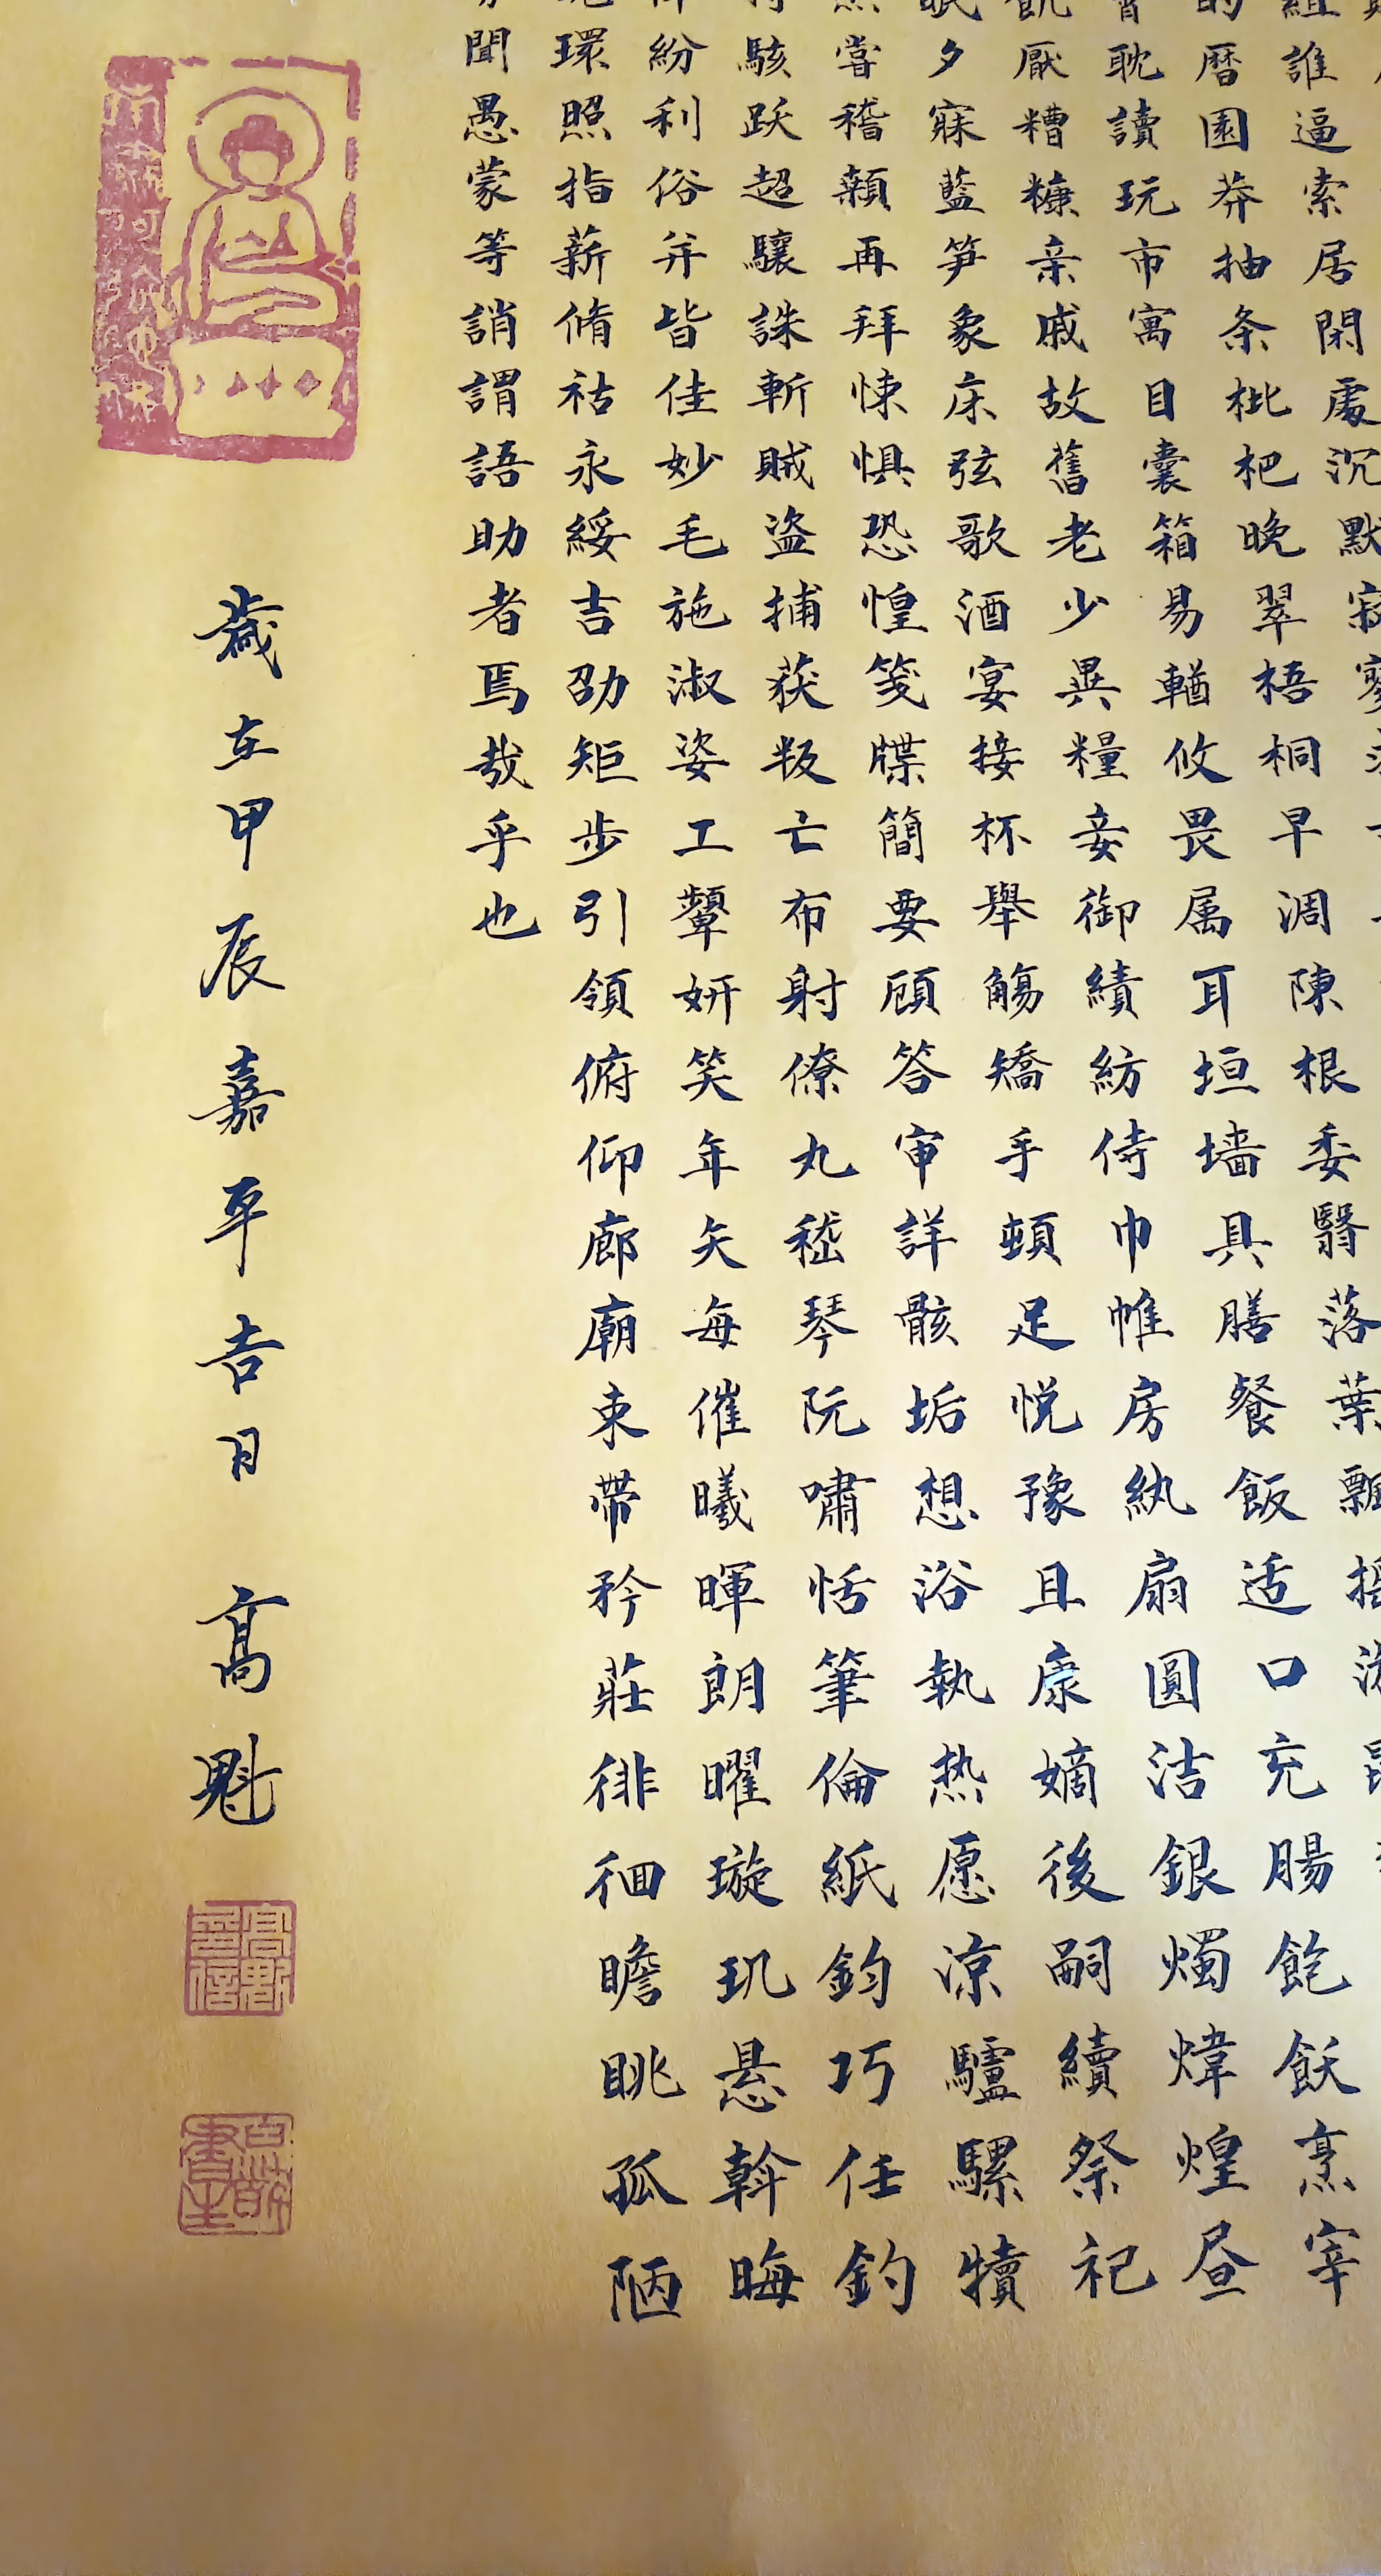 誰逼索居閑處沉默寂寥
曆園莽抽条枇杷晚翠梧桐早凋陳根委翳落葉飄搖游
耽讀玩市寓目囊箱易輶攸畏属耳垣墙具膳餐飯适口充腸飽飫烹宰
厭糟糠亲戚故舊老少異糧妾御績紡侍巾帷房紈扇圓洁銀燭煒煌昼
眠夕寐藍笋象床弦歌酒宴接杯舉觴矯手頓足悦豫且康嫡後嗣續祭祀
嘗稽顙再拜悚惧恐惶箋牒簡要顧答审詳骸垢想浴執热愿凉驢騾犢
駭跃超驤誅斬賊盗捕获叛亡布射僚丸嵇琴阮嘯恬筆倫紙鈞巧任釣
紛利俗并皆佳妙毛施淑姿工顰妍笑年矢每催曦暉朗曜璇玑悬斡晦
環照指薪脩祜永綏吉劭矩步引領俯仰廊廟束帶矜莊徘徊瞻眺孤陋
聞愚蒙等誚謂語助者焉哉乎也
歲在甲辰嘉平吉日 高魁
高魁印信